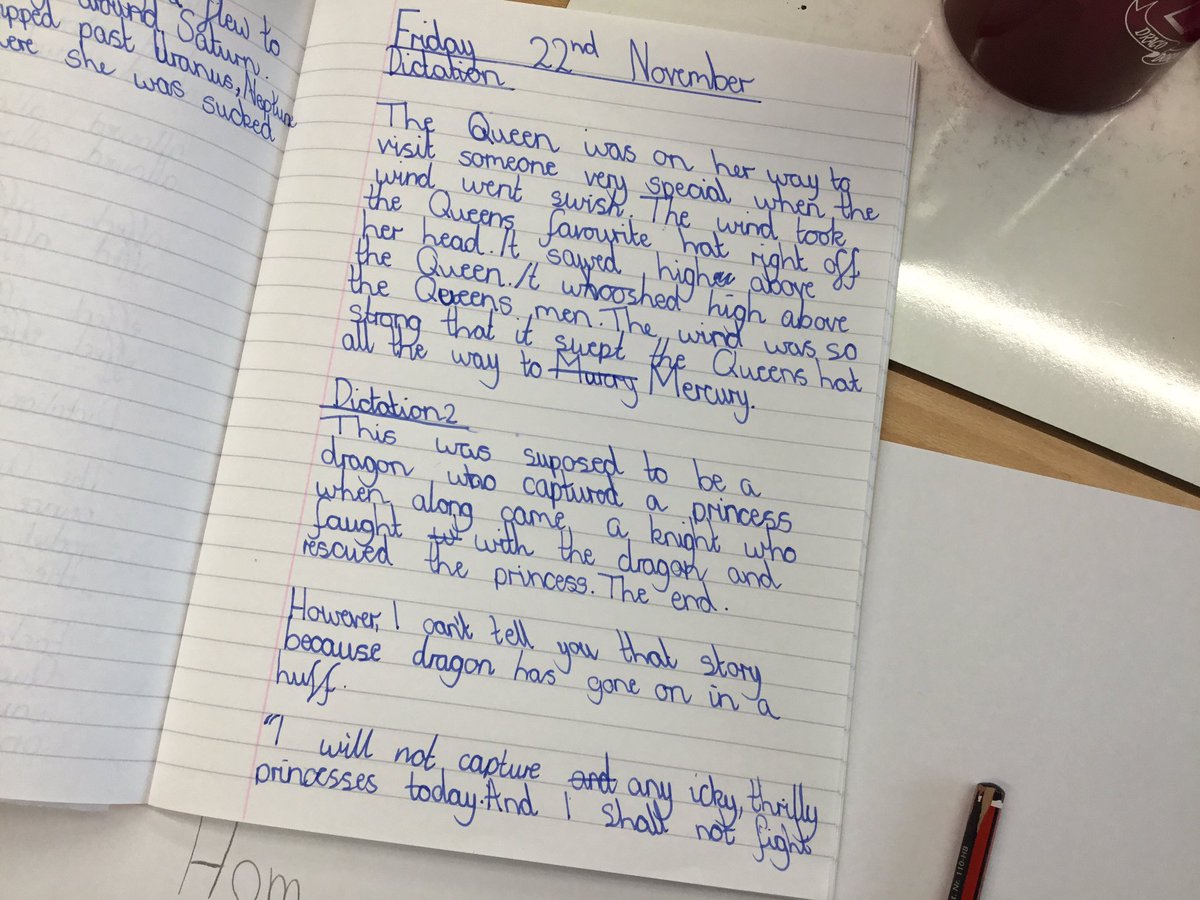 flew to
around Saturn.
past Uranus, Neptune
she was sucked
Friday 22nd November
Dictation
The Queen was on her way to
visit someone very special when the
wind went swish. The wind took
the Queens favourite hat right off
her head. It sayred higher above
the Queen. It whooshed high above
the Queens men. The wind was so
strong that it swept the Queens hat
all the way to Marcry Mercury.
Dictation 2
This was suposed to be a
dragon who captured a princess
when along came a knight who
faught with the dragon and
rescued the princess. The end.
However, I can't tell you that story
because dragon has gone on in a
huff.
"I will not capture and any icky, thrilly
princesses today. And I shall not fight
Hom